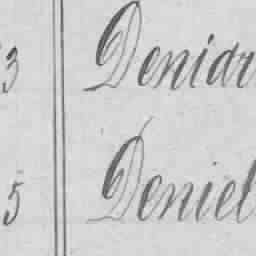 3 Deniar
5 Deniel